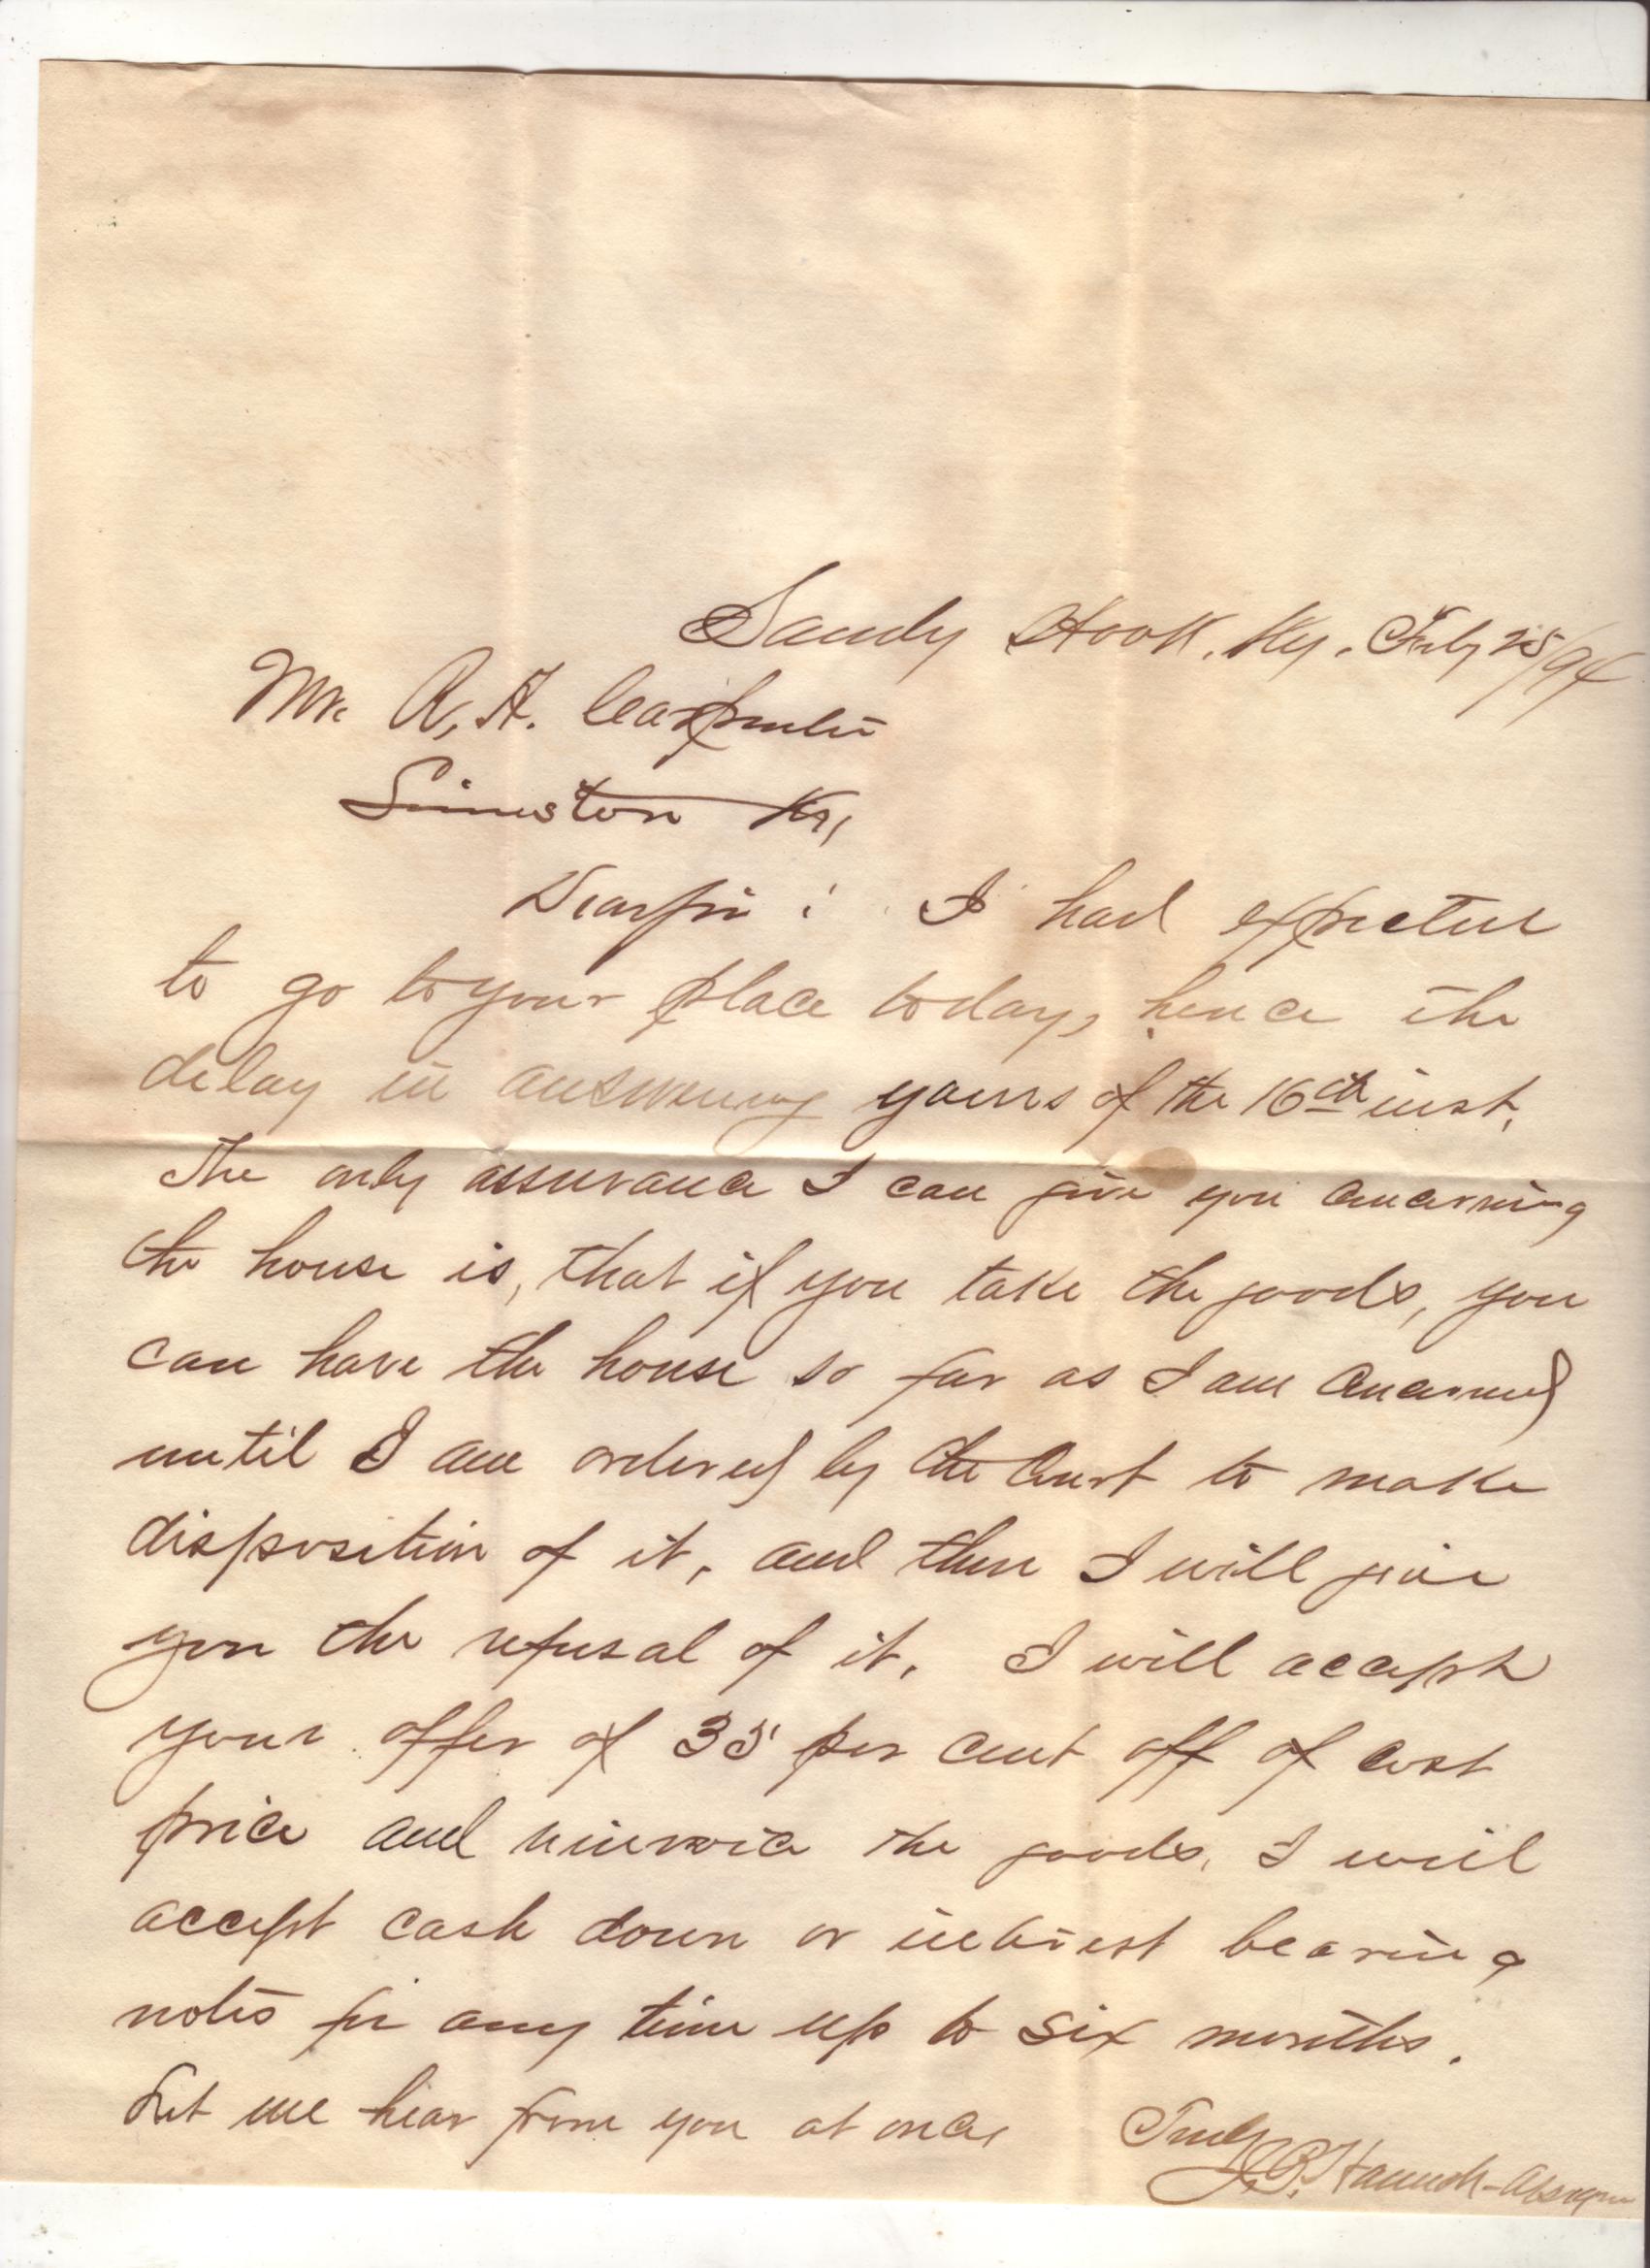 Sandy Hook, Ky. Feby 25/94
Mr. R. H. Carpenter
Limestone Ky,
Dear sir: I had expected
to go to your place today, hence the
delay in answering yours of the 16th inst.
The only assurance I can give you concerning
the house is, that if you take the goods, you
can have the house so far as I am concerned
until I am ordered by the Court to make
disposition of it, and then I will give
you the refusal of it. I will accept
your offer of 35 per cent off of cost
price and invoice the goods. I will
accept cash down or interest bearing
notes for any time up to six months.
Let me hear from you at once,
Truly
J. B. Hannah -